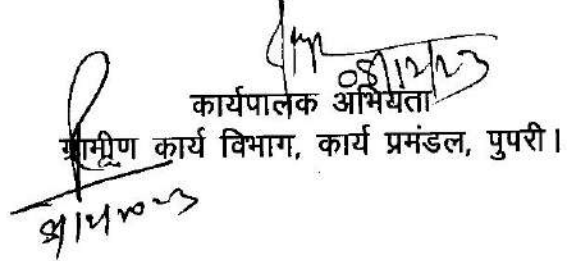 08/12/23
कार्यपालक अभियंता
ग्रामीण कार्य विभाग, कार्य प्रमंडल, पुपरी।